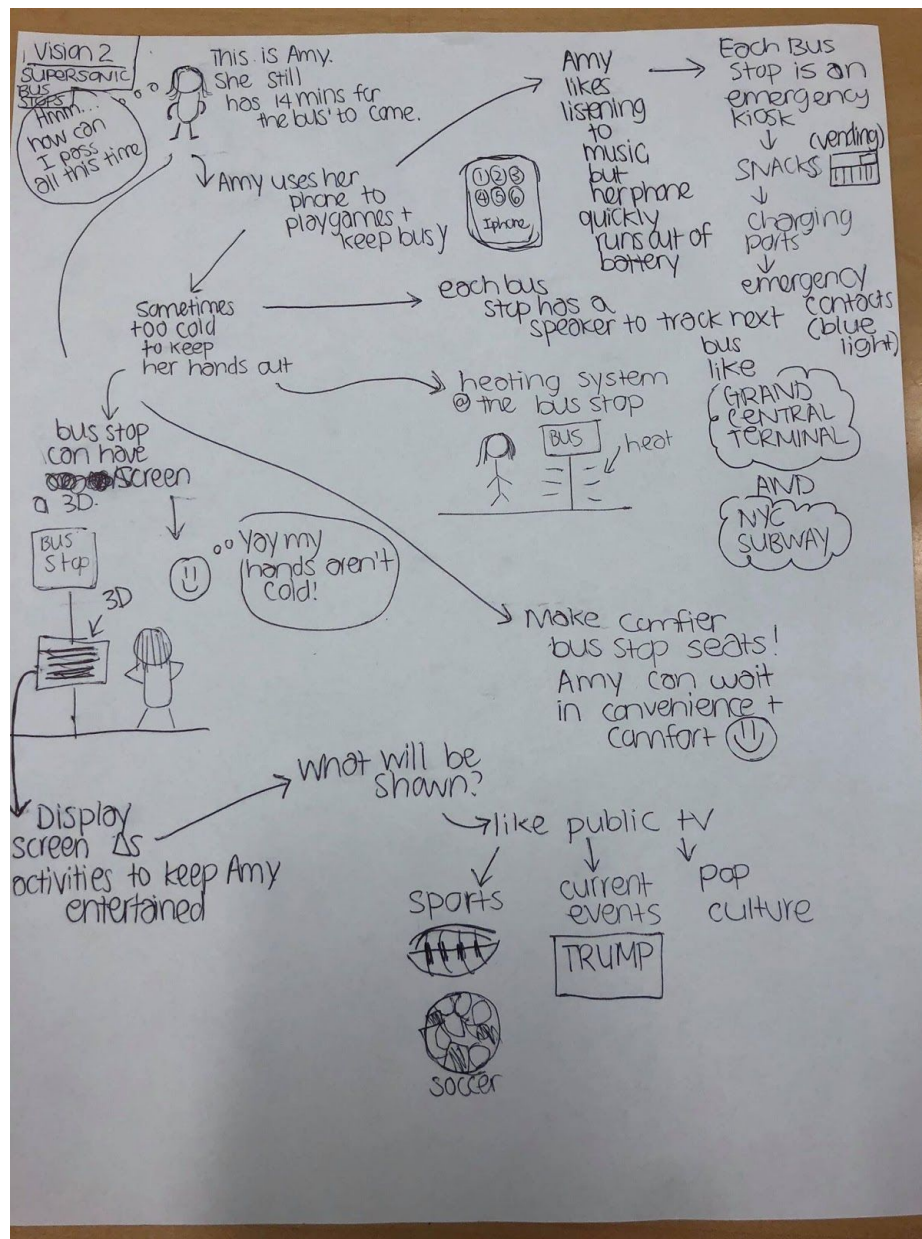 Vision 2
SUPERSONIC
BUS
STOPS
Hmm...
how can
I pass
all this time
This is Amy.
She still
has 14 mins for
the bus to come.
Amy uses her
phone to
play games +
keep busy
1 2 3
4 5 6
Iphone
Amy
likes
listening
to
music
but
her phone
quickly
runs out of
battery
Each Bus
Stop is an
emergency
kiosk
(vending)
SNACKS
charging
ports
emergency
contacts
(blue
light)
Sometimes
too cold
to keep
her hands out
each bus
stop has a
speaker to track next
bus
like
GRAND
CENTRAL
TERMINAL
AND
NYC
SUBWAY
heating system
@ the bus stop
BUS
heat
bus stop
can have
/screen
a 3D.
BUS
Stop
3D
Yay my
hands aren't
cold!
Make comfier
bus stop seats!
Amy can wait
in convenience +
comfort
Display
screen Δs
activities to keep Amy
entertained
What will be
shown?
like public tv
sports
soccer
current
events
TRUMP
pop
culture